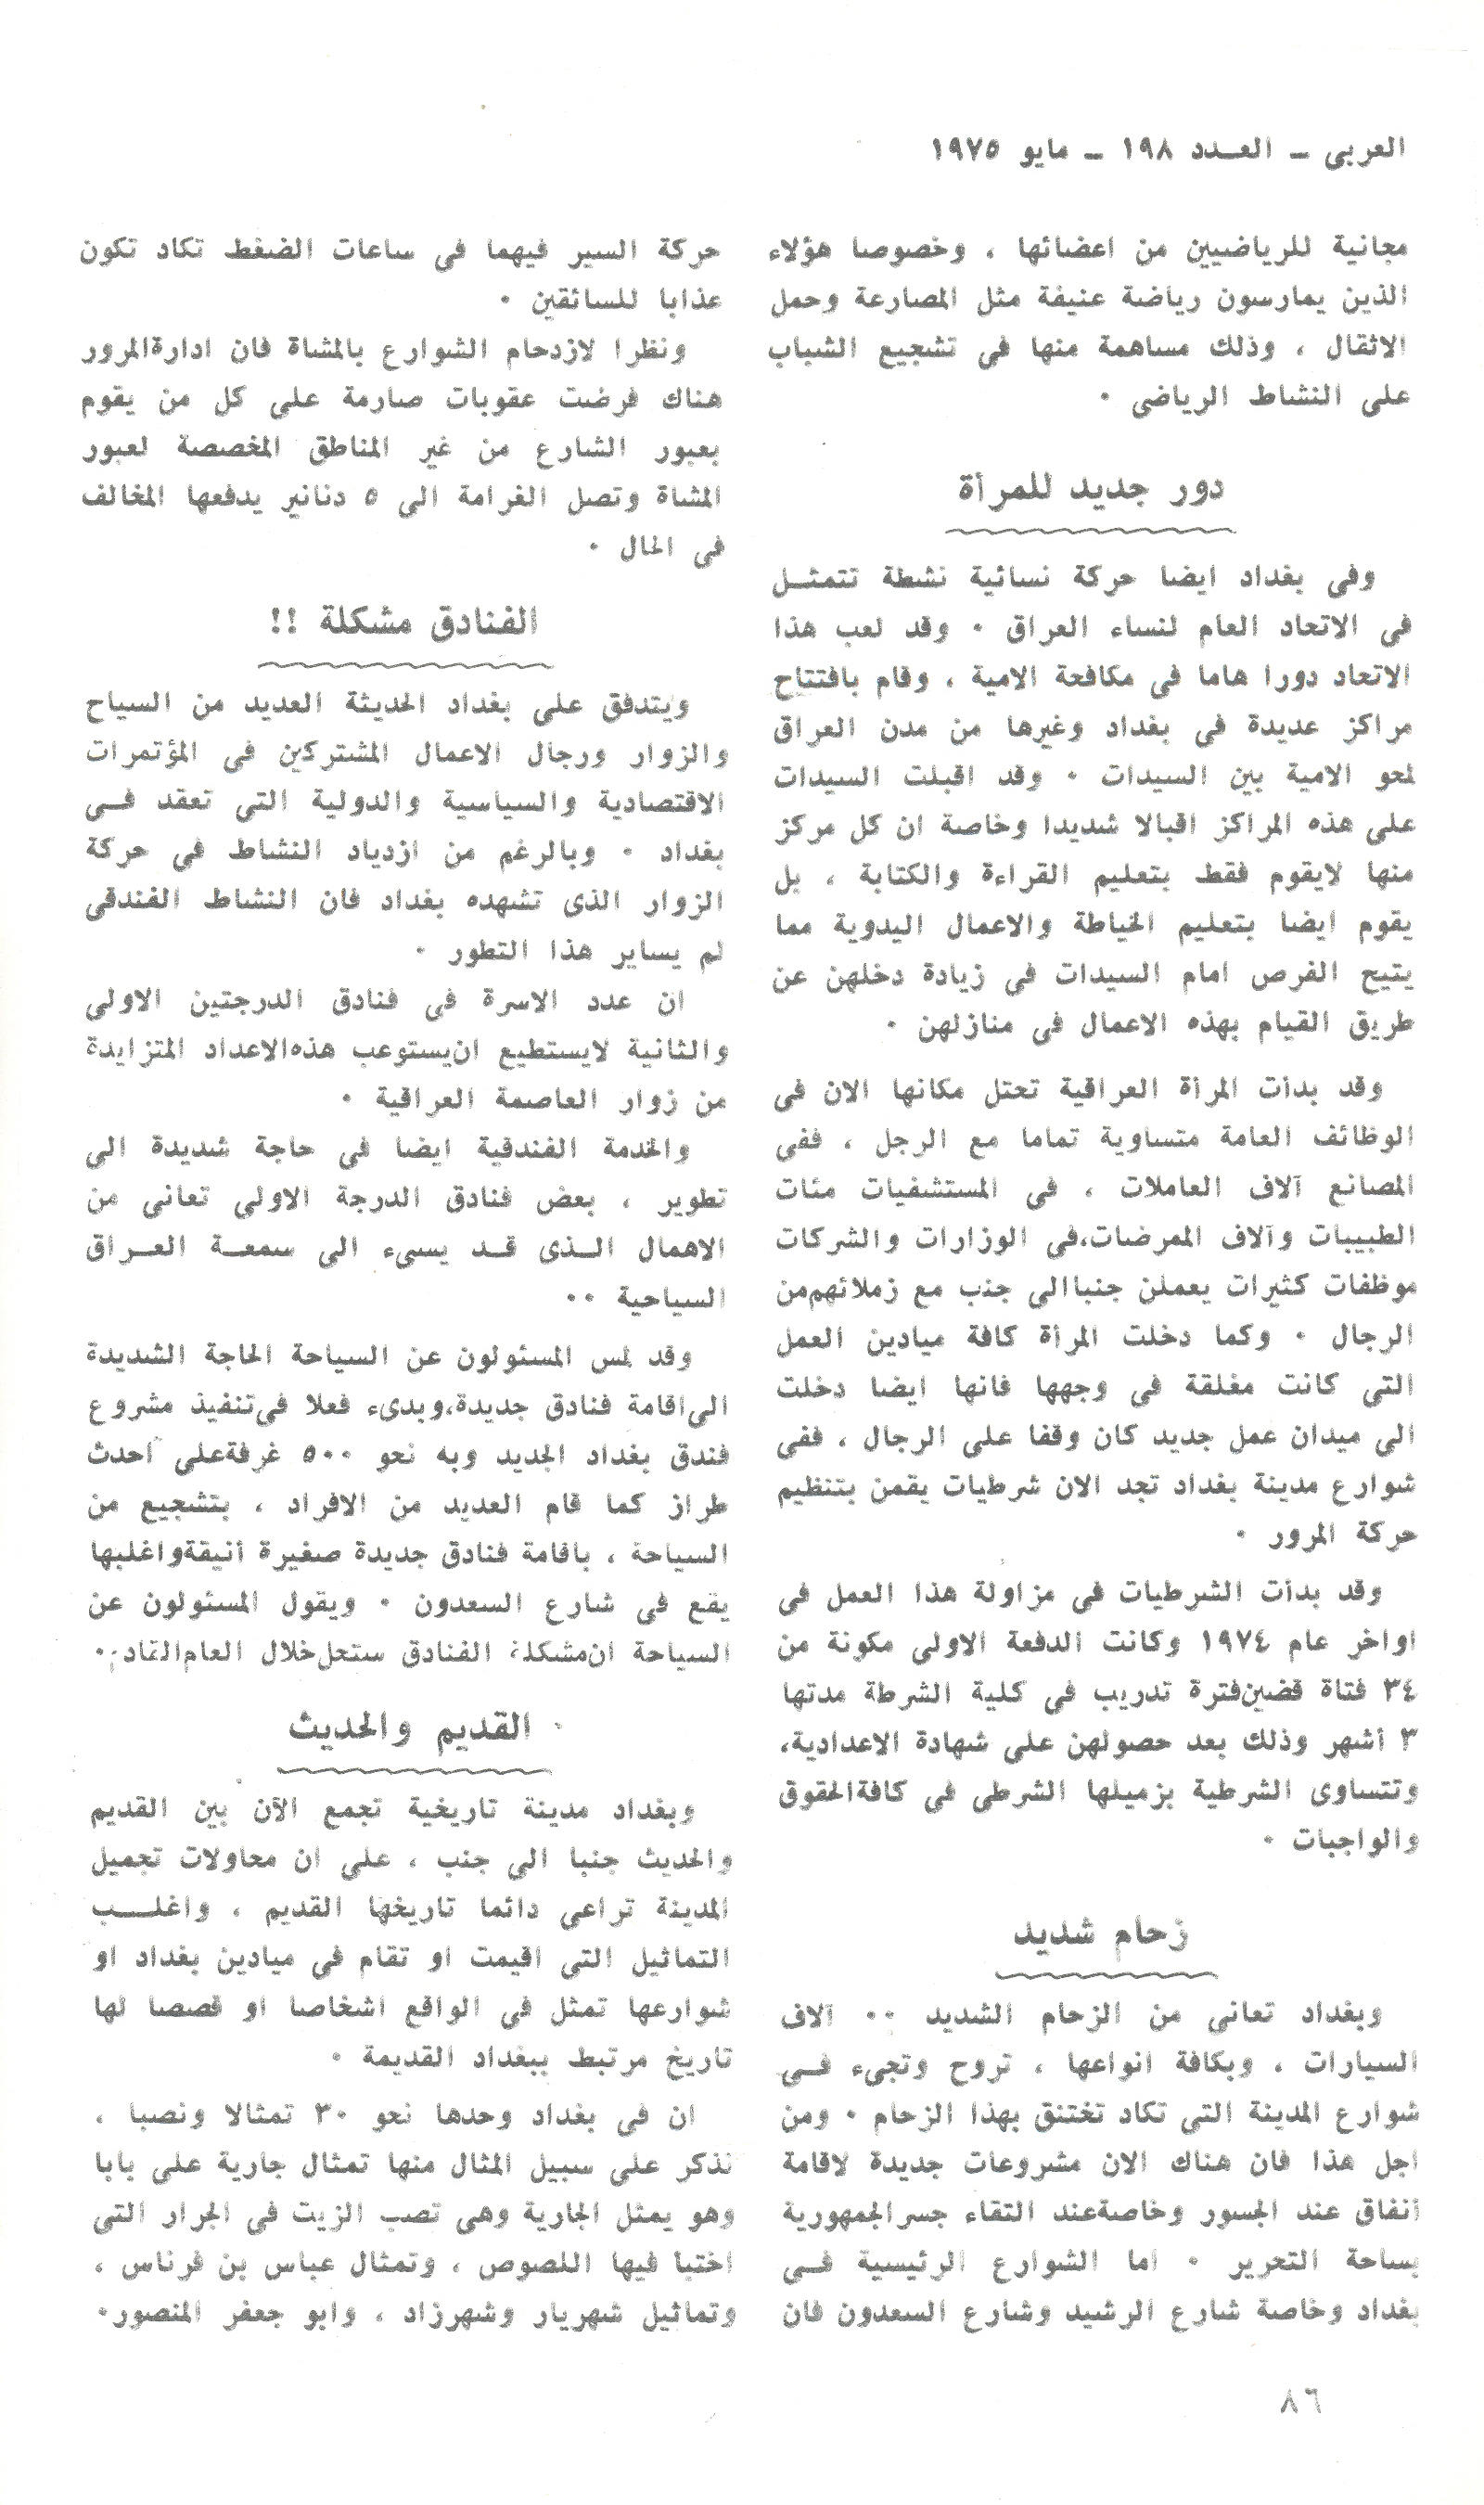 العربى ــ العــدد ١٩٨ ــ مايو ١٩٧٥
مجانية للرياضيين من اعضائها ، وخصوصا هؤلاء
الذين يمارسون رياضة عنيفة مثل المصارعة وحمل
الاثقال ، وذلك مساهمة منها فى تشجيع الشباب
على النشاط الرياضى ٠
دور جديد للمرأة
وفى بغداد ايضا حركة نسائية نشطة تتمثــل
فى الاتحاد العام لنساء العراق ٠ وقد لعب هذا
الاتحاد دورا هاما فى مكافحة الامية ، وقام بافتتاح
مراكز عديدة فى بغداد وغيرها من مدن العراق
لمحو الامية بين السيدات ٠ وقد اقبلت السيدات
على هذه المراكز اقبالا شديدا وخاصة ان كل مركز
منها لايقوم فقط بتعليم القراءة والكتابة ، بل
يقوم ايضا بتعليم الخياطة والاعمال اليدوية مما
يتيح الفرص امام السيدات فى زيادة دخلهن عن
طريق القيام بهذه الاعمال فى منازلهن ٠
وقد بدأت المرأة العراقية تحتل مكانها الان فى
الوظائف العامة متساوية تماما مع الرجل ، ففى
المصانع آلاف العاملات ، فى المستشفيات مئات
الطبيبات وآلاف الممرضات،فى الوزارات والشركات
موظفات كثيرات يعملن جنباالى جنب مع زملائهم من
الرجال ٠ وكما دخلت المرأة كافة ميادين العمل
التى كانت مغلقة فى وجهها فانها ايضا دخلت
الى ميدان عمل جديد كان وقفا على الرجال ، ففى
شوارع مدينة بغداد تجد الان شرطيات يقمن بتنظيم
حركة المرور ٠
وقد بدأت الشرطيات فى مزاولة هذا العمل فى
اواخر عام ١٩٧٤ وكانت الدفعة الاولى مكونة من
٣٤ فتاة قضين فترة تدريب فى كلية الشرطة مدتها
٣ أشهر وذلك بعد حصولهن على شهادة الاعدادية،
وتتساوى الشرطية بزميلها الشرطى فى كافةالحقوق
والواجبات ٠
زحام شديد
وبغداد تعانى من الزحام الشديد ٠٠ آلاف
السيارات ، وبكافة انواعها ، تروح وتجىء فــى
شوارع المدينة التى تكاد تختنق بهذا الزحام ٠ ومن
اجل هذا فان هناك الان مشروعات جديدة لاقامة
أنفاق عند الجسور وخاصةعند التقاء جسرالجمهورية
بساحة التحرير ٠ اما الشوارع الرئيسية فــى
بغداد وخاصة شارع الرشيد وشارع السعدون فان
حركة السير فيهما فى ساعات الضغط تكاد تكون
عذابا للسائقين ٠
ونظرا لازدحام الشوارع بالمشاة فان ادارةالمرور
هناك فرضت عقوبات صارمة على كل من يقوم
بعبور الشارع من غير المناطق المخصصة لعبور
المشاة وتصل الغرامة الى ٥ دنانير يدفعها المخالف
فى الحال ٠
الفنادق مشكلة !!
ويتدفق على بغداد الحديثة العديد من السياح
والزوار ورجال الاعمال المشتركين فى المؤتمرات
الاقتصادية والسياسية والدولية التى تعقد فــى
بغداد ٠ وبالرغم من ازدياد النشاط فى حركة
الزوار الذى تشهده بغداد فان النشاط الفندقى
لم يساير هذا التطور ٠
ان عدد الاسرة فى فنادق الدرجتين الاولى
والثانية لايستطيع ان يستوعب هذه الاعداد المتزايدة
من زوار العاصمة العراقية ٠
والخدمة الفندقية ايضا فى حاجة شديدة الى
تطوير ، بعض فنادق الدرجة الاولى تعانى من
الاهمال الــذى قــد يسىء الى سمعــة العــراق
السياحية ٠٠
وقد لمس المسئولون عن السياحة الحاجة الشديدة
الى اقامة فنادق جديدة،وبدىء فعلا فى تنفيذ مشروع
فندق بغداد الجديد وبه نحو ٥٠٠ غرفةعلى أحدث
طراز كما قام العديد من الافراد ، بتشجيع من
السياحة ، باقامة فنادق جديدة صغيرة أنيقةواغلبها
يقع فى شارع السعدون ٠ ويقول المسئولون عن
السياحة ان مشكلة الفنادق ستحل خلال العام القادم٠
القديم والحديث
وبغداد مدينة تاريخية تجمع الآن بين القديم
والحديث جنبا الى جنب ، على ان محاولات تجميل
المدينة تراعى دائما تاريخها القديم ، واغلــب
التماثيل التى اقيمت او تقام فى ميادين بغداد او
شوارعها تمثل فى الواقع اشخاصا او قصصا لها
تاريخ مرتبط ببغداد القديمة ٠
ان فى بغداد وحدها نحو ٣٠ تمثالا ونصبا ،
نذكر على سبيل المثال منها تمثال جارية على بابا
وهو يمثل الجارية وهى تصب الزيت فى الجرار التى
اختبا فيها اللصوص ، وتمثال عباس بن فرناس ،
وتماثيل شهريار وشهرزاد ، وابو جعفر المنصور٠
٨٦